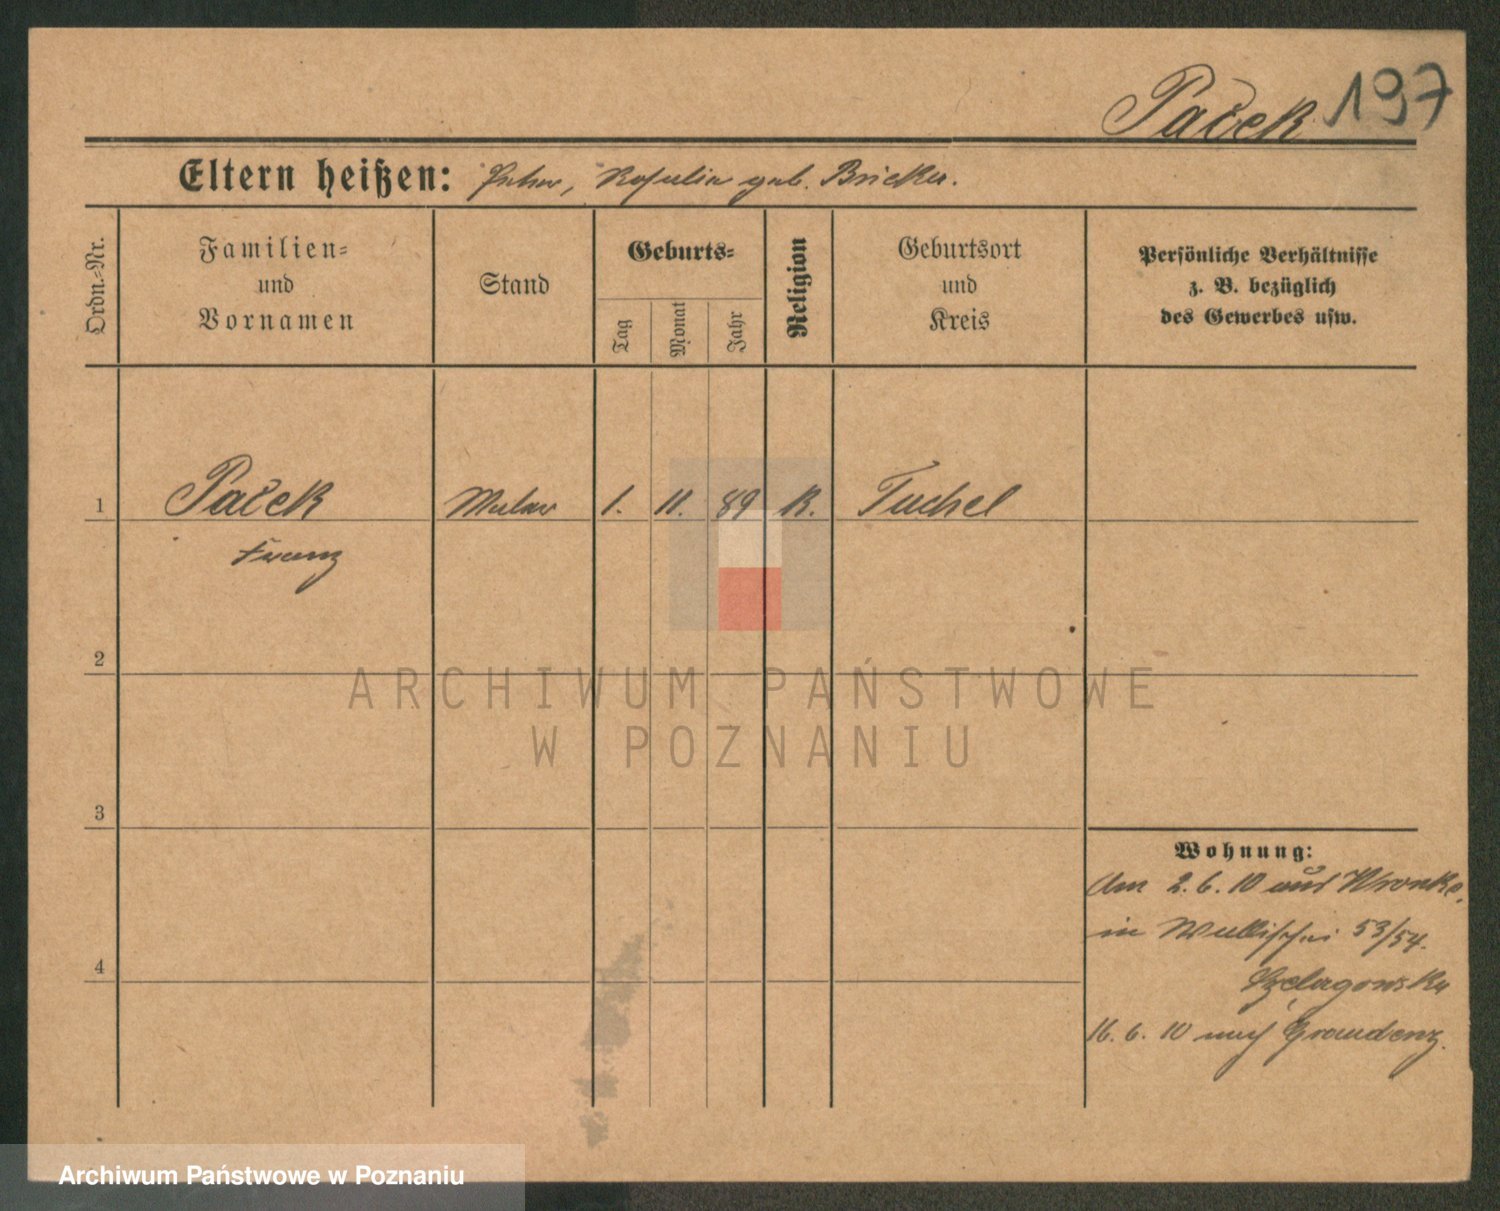 Paček 197
Eltern heißen: Peter, Rosalia geb. Bricka.
Ordn.-Nr.
Familien-
und
Vornamen
Stand
Geburts-
Tag
Monat
Jahr
Religion
Geburtsort
und
Kreis
Persönliche Verhältnisse
z. B. bezüglich
des Gewerbes usw.
1 Paček Maler 1. 11. 89 K. Tuchel
Franz
2
3
4
Wohnung:
Am 2.6.10 aus Wronke,
in Wallischei 53/54.
Szelagowska
16.6.10 nach Graudenz.
ARCHIWUM PAŃSTWOWE
W POZNANIU
Archiwum Państwowe w Poznaniu